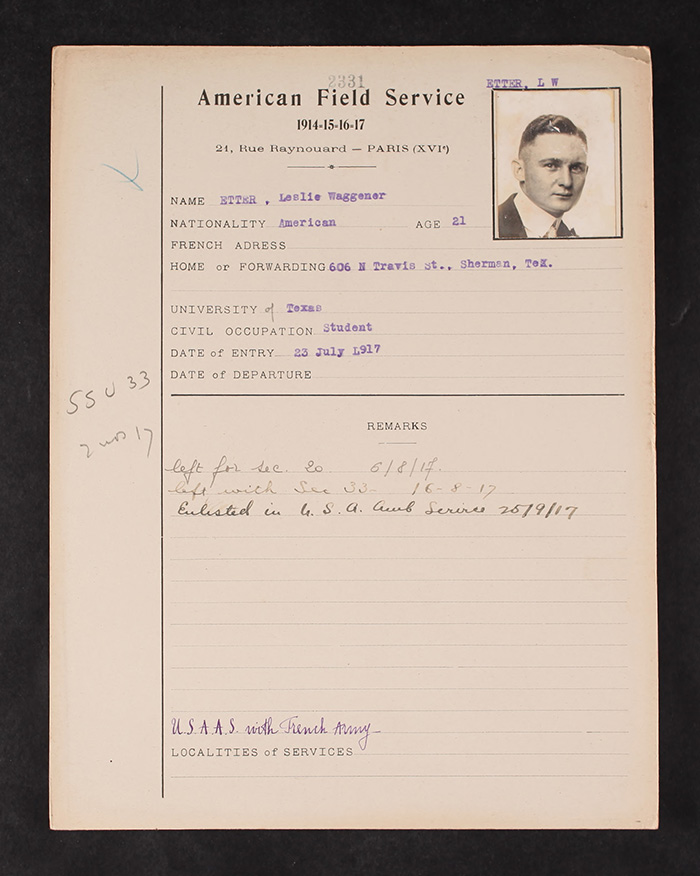 2331
ETTER, L W
American Field Service
1914-15-16-17
21, Rue Raynouard — PARIS (XVIe)
NAME ETTER , Leslie Waggener
NATIONALITY American AGE 21
FRENCH ADRESS
HOME or FORWARDING 606 N Travis St., Sherman, Tex.
UNIVERSITY of Texas
CIVIL OCCUPATION Student
DATE of ENTRY 23 July 1917
DATE of DEPARTURE
SSU 33
2 mos 17
REMARKS
left for sec. 20 6/8/17.
left with Sec 33- 16-8-17
Enlisted in U.S.A. Amb Service 25/9/17
U.S.A.A.S. with French Army
LOCALITIES of SERVICES